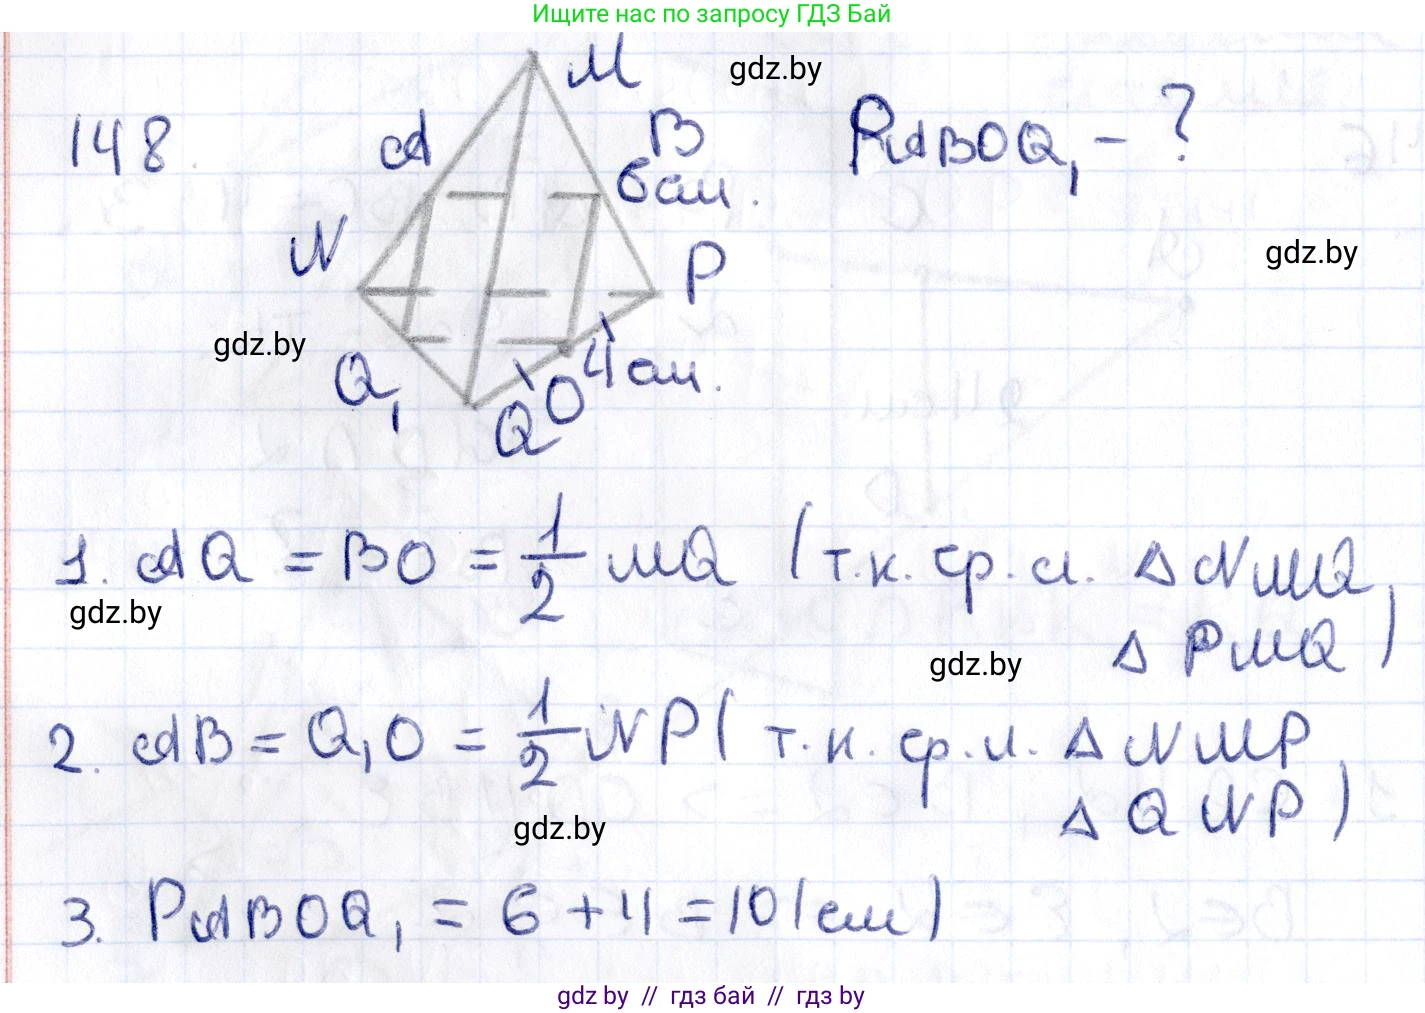 Ищите нас по запросу ГДЗ Бай
M
gdz.by
148.
A
B
PABOQ₁ - ?
6см.
N
P
gdz.by
gdz.by
Q₁
4 см.
O
Q
1. AQ = BO = 1/2 MQ (т.к. ср. л. Δ NMQ,
gdz.by
Δ PMQ)
gdz.by
2. AB = Q₁O = 1/2 NP (т.к. ср. л. Δ NMP,
Δ QNP)
gdz.by
3. PABOQ₁ = 6 + 4 = 10 (см)
gdz.by // гдз бай // гдз by